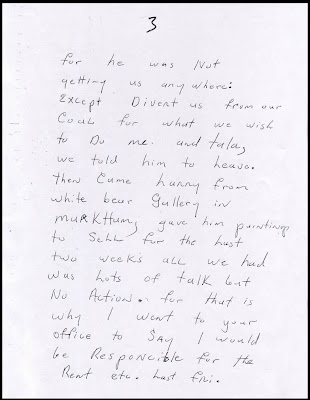 3
for he was Not
getting us anywhere:
Except Divert us from our
Goal for what we wish
to Do me and tala,
we told him to leave.
then came harry from
white bear gallery in
MARKHAM, gave him paintings
to Sell for the Last
two weeks all we had
was Lots of talk but
No Action. for that is
why I went to your
office to SAY I would
be Responcible for the
Rent etc. Last fri.